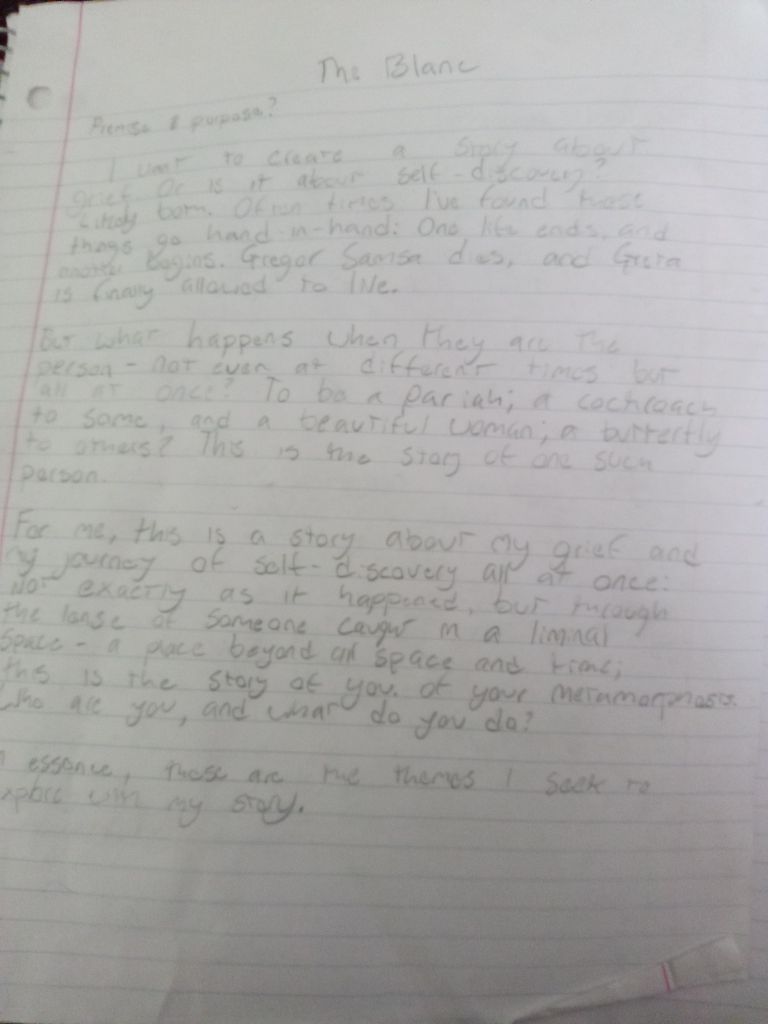 The Blanc
Premise & purpose?
I want to create a story about
grief. Or is it about self-discovery?
Likely both. Often times I've found those
things go hand-in-hand: One life ends, and
another begins. Gregor Samsa dies, and Greta
is finally allowed to live.
But what happens when they are the
person - not even at different times but
all at once? To be a pariah; a cockroach
to some, and a beautiful woman; a butterfly
to others? This is the story of one such
person.
For me, this is a story about my grief and
my journey of self-discovery all at once:
Not exactly as it happened, but through
the lense of someone caught in a liminal
space - a place beyond all space and time;
this is the story of you. of your metamorphosis.
Who are you, and what do you do?
essence, these are the themes I seek to
explore with my story.